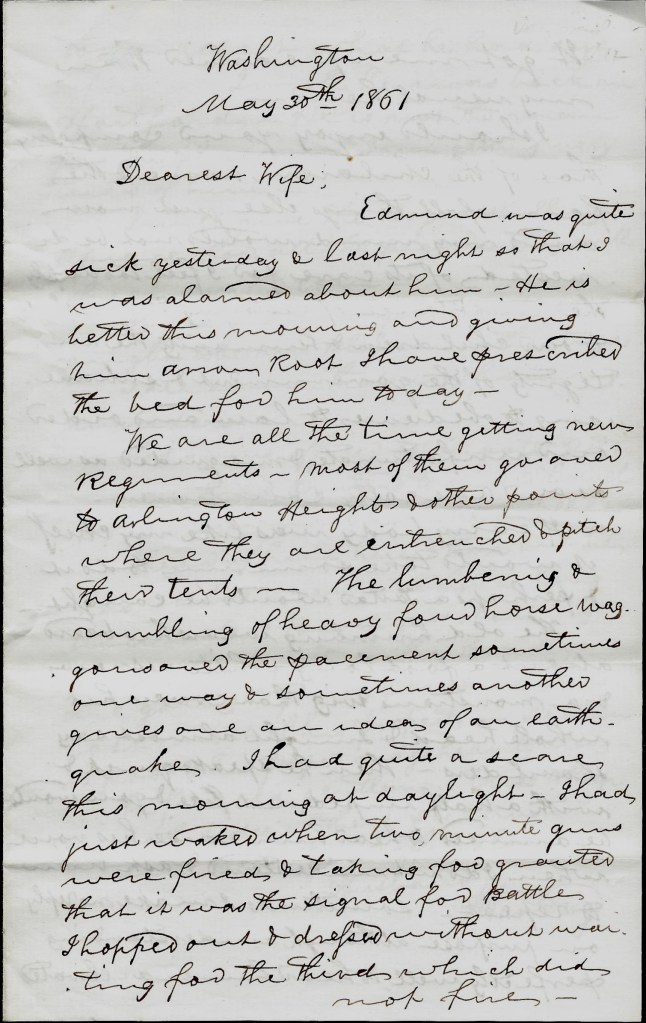 Washington
May 30th 1861
Dearest Wife,
Edmund was quite
sick yesterday & last night so that I
was alarmed about him – He is
better this morning and giving
him arrow Root I have prescribed
the bed for him to day –
We are all the time getting new
Regiments – most of them go over
to Arlington Heights & other points
where they are entrenched & pitch
their tents – The lumbering &
rumbling of heavy four horse wag-
gons over the pavement sometimes
one way & sometimes another
gives one an idea of an earth-
quake. I had quite a scare
this morning at daylight – I had
just waked when two minute guns
were fired & taking for granted
that it was the signal for Battle
I hopped out & dressed without wai-
ting for the third which did
not fire –